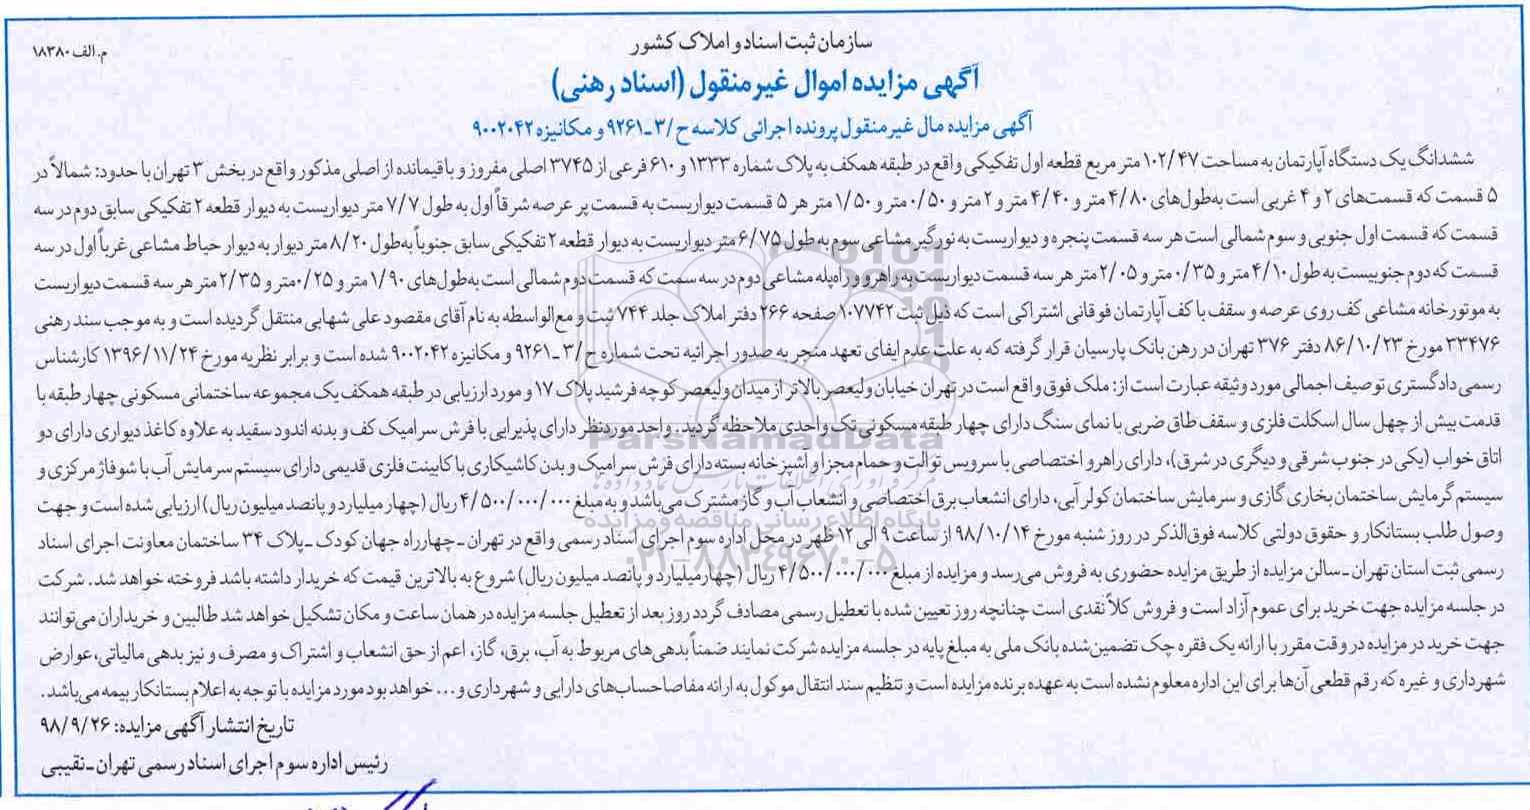 سازمان ثبت اسناد و املاک کشور
م.الف ۱۸۳۸۰
آگهی مزایده اموال غیرمنقول (اسناد رهنی)
آگهی مزایده مال غیرمنقول پرونده اجرائی کلاسه ح/۳-۹۲۶۱ و مکانیزه ۹۰۰۲۰۴۲
ششدانگ یک دستگاه آپارتمان به مساحت ۱۰۲/۴۷ متر مربع قطعه اول تفکیکی واقع در طبقه همکف به پلاک شماره ۱۳۳۳ و ۶۱۰ فرعی از ۳۷۴۵ اصلی مفروز و باقیمانده از اصلی مذکور واقع در بخش ۳ تهران با حدود: شمالاً در
۵ قسمت که قسمت‌های ۲ و ۴ غربی است به‌طول‌های ۴/۸۰ متر و ۴/۴۰ متر و ۲ متر و ۰/۵۰ متر و ۱/۵۰ متر هر ۵ قسمت دیواریست به قسمت پر عرصه شرقاً اول به طول ۷/۷ متر دیواریست به دیوار قطعه ۲ تفکیکی سابق دوم در سه
قسمت که قسمت اول جنوبی و سوم شمالی است هر سه قسمت پنجره و دیواریست به نورگیر مشاعی سوم به طول ۶/۷۵ متر دیواریست به دیوار قطعه ۲ تفکیکی سابق جنوباً به‌طول ۸/۲۰ متر دیوار به دیوار حیاط مشاعی غرباً اول در سه
قسمت که دوم جنوبیست به طول ۴/۱۰ متر و ۰/۳۵ متر و ۲/۰۵ متر هر سه قسمت دیواریست به راهرو و راه‌پله مشاعی دوم در سه سمت که قسمت دوم شمالی است به‌طول‌های ۱/۹۰ متر و ۰/۲۵ متر و ۲/۳۵ متر هر سه قسمت دیواریست
به موتورخانه مشاعی کف روی عرصه و سقف با کف آپارتمان فوقانی اشتراکی است که ذیل ثبت ۱۰۷۷۴۲ صفحه ۲۶۶ دفتر املاک جلد ۷۴۴ ثبت و مع‌الواسطه به نام آقای مقصود علی شهابی منتقل گردیده است و به موجب سند رهنی
۳۳۴۷۶ مورخ ۸۶/۱۰/۲۳ دفتر ۳۷۶ تهران در رهن بانک پارسیان قرار گرفته که به علت عدم ایفای تعهد منجر به صدور اجرائیه تحت شماره ح/۳-۹۲۶۱ و مکانیزه ۹۰۰۲۰۴۲ شده است و برابر نظریه مورخ ۱۳۹۶/۱۱/۲۴ کارشناس
رسمی دادگستری توصیف اجمالی مورد وثیقه عبارت است از: ملک فوق واقع است در تهران خیابان ولیعصر بالاتر از میدان ولیعصر کوچه فرشید پلاک ۱۷ و مورد ارزیابی در طبقه همکف یک مجموعه ساختمانی مسکونی چهار طبقه با
قدمت بیش از چهل سال اسکلت فلزی و سقف طاق ضربی با نمای سنگ دارای چهار طبقه مسکونی تک واحدی ملاحظه گردید. واحد موردنظر دارای پذیرایی با فرش سرامیک کف و بدنه اندود سفید به علاوه کاغذ دیواری دارای دو
اتاق خواب (یکی در جنوب شرقی و دیگری در شرق)، دارای راهرو اختصاصی با سرویس توالت و حمام مجزا و آشپزخانه بسته دارای فرش سرامیک و بدن کاشیکاری با کابینت فلزی قدیمی دارای سیستم سرمایش آب با شوفاژ مرکزی و
سیستم گرمایش ساختمان بخاری گازی و سرمایش ساختمان کولر آبی، دارای انشعاب برق اختصاصی و انشعاب آب و گاز مشترک می‌باشد و به مبلغ ۴/۵۰۰/۰۰۰/۰۰۰ ریال (چهار میلیارد و پانصد میلیون ریال) ارزیابی شده است و جهت
وصول طلب بستانکار و حقوق دولتی کلاسه فوق‌الذکر در روز شنبه مورخ ۹۸/۱۰/۱۴ از ساعت ۹ الی ۱۲ ظهر در محل اداره سوم اجرای اسناد رسمی واقع در تهران - چهارراه جهان کودک - پلاک ۳۴ ساختمان معاونت اجرای اسناد
رسمی ثبت استان تهران - سالن مزایده از طریق مزایده حضوری به فروش می‌رسد و مزایده از مبلغ ۴/۵۰۰/۰۰۰/۰۰۰ ریال (چهارمیلیارد و پانصد میلیون ریال) شروع به بالاترین قیمت که خریدار داشته باشد فروخته خواهد شد. شرکت
در جلسه مزایده جهت خرید برای عموم آزاد است و فروش کلاً نقدی است چنانچه روز تعیین شده با تعطیل رسمی مصادف گردد روز بعد از تعطیل جلسه مزایده در همان ساعت و مکان تشکیل خواهد شد طالبین و خریداران می‌توانند
جهت خرید در مزایده در وقت مقرر با ارائه یک فقره چک تضمین‌شده بانک ملی به مبلغ پایه در جلسه مزایده شرکت نمایند ضمناً بدهی‌های مربوط به آب، برق، گاز، اعم از حق انشعاب و اشتراک و مصرف و نیز بدهی مالیاتی، عوارض
شهرداری و غیره که رقم قطعی آن‌ها برای این اداره معلوم نشده است به عهده برنده مزایده است و تنظیم سند انتقال موکول به ارائه مفاصاحساب‌های دارایی و شهرداری و... خواهد بود مورد مزایده با توجه به اعلام بستانکار بیمه می‌باشد.
تاریخ انتشار آگهی مزایده: ۹۸/۹/۲۶
رئیس اداره سوم اجرای اسناد رسمی تهران - نقیبی
ParsNamadData
پایگاه اطلاع رسانی مناقصه و مزایده
۰۲۱-۸۸۳۴۹۶۷۰-۵